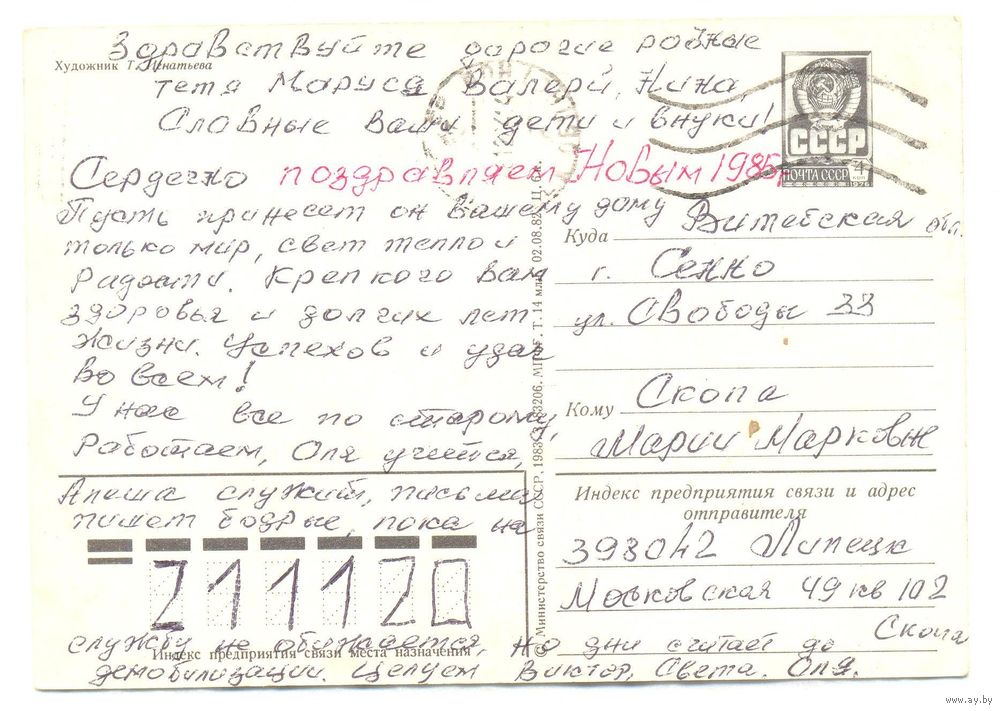 Здравствуйте дорогие родные
Художник Т. Игнатьева
тетя Маруся Валерй, Нина,
Славные ваши дети и внуки!
СССР
ПОЧТА СССР 4 коп
1978
Сердечно поздравляем Новым 1985,
Пусть принесет он Вашему дому
только мир, свет тепло и
Радости. Крепкого Вам
здоровья и долгих лет
жизни. Успехов и удач
Во всем!
У нас все по старому,
Работаем, Оля учится,
Алеша служит, письма
пишет бодрые, пока на
211120
службу не обижается, но дни считает до
Индекс предприятия связи места назначения
демобилизации. Целуем Виктор, Света. Оля.
© Министерство связи СССР, 1983 02.08.82
Куда Витебская обл.
г. Сенно
ул. Свободы 33
Кому Скопа
Марии Марковне
Индекс предприятия связи и адрес
отправителя
398042 Липецк
Московская 49 кв 102
Скопа
www.ay.by